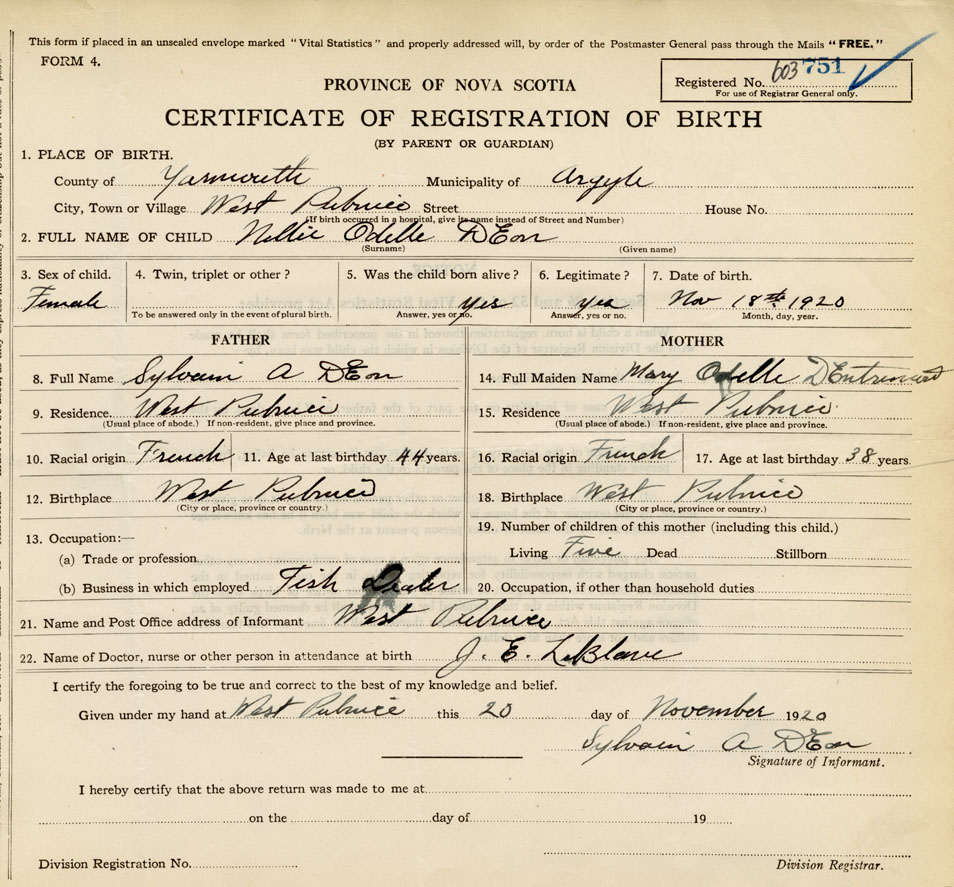 This form if placed in an unsealed envelope marked "Vital Statistics" and properly addressed will, by order of the Postmaster General pass through the Mails "FREE."
FORM 4.
Registered No. 603 751
For use of Registrar General only.
PROVINCE OF NOVA SCOTIA
CERTIFICATE OF REGISTRATION OF BIRTH
(BY PARENT OR GUARDIAN)
1. PLACE OF BIRTH.
County of Yarmouth Municipality of Argyle
City, Town or Village West Pubnico Street House No.
(If birth occurred in a hospital, give its name instead of Street and Number)
2. FULL NAME OF CHILD Nellie Odelle DEon
(Surname) (Given name)
3. Sex of child. 4. Twin, triplet or other? 5. Was the child born alive? 6. Legitimate? 7. Date of birth.
Female yes yes Nov 18th 1920
To be answered only in the event of plural birth. Answer, yes or no. Answer, yes or no. Month, day, year.
FATHER MOTHER
8. Full Name Sylvain A DEon 14. Full Maiden Name Mary Odelle DEntremont
9. Residence. West Pubnico 15. Residence West Pubnico
(Usual place of abode.) If non-resident, give place and province. (Usual place of abode.) If non-resident, give place and province.
10. Racial origin French 11. Age at last birthday 44 years. 16. Racial origin French 17. Age at last birthday 38 years.
12. Birthplace West Pubnico 18. Birthplace West Pubnico
(City or place, province or country.) (City or place, province or country.)
13. Occupation:— 19. Number of children of this mother (including this child.)
(a) Trade or profession Living Five Dead Stillborn
(b) Business in which employed Fish Dealer 20. Occupation, if other than household duties
21. Name and Post Office address of Informant West Pubnico
22. Name of Doctor, nurse or other person in attendance at birth J. E. LeBlanc
I certify the foregoing to be true and correct to the best of my knowledge and belief.
Given under my hand at West Pubnico this 20 day of November 1920
Sylvain A DEon
Signature of Informant.
I hereby certify that the above return was made to me at
on the day of 19
Division Registration No.
Division Registrar.